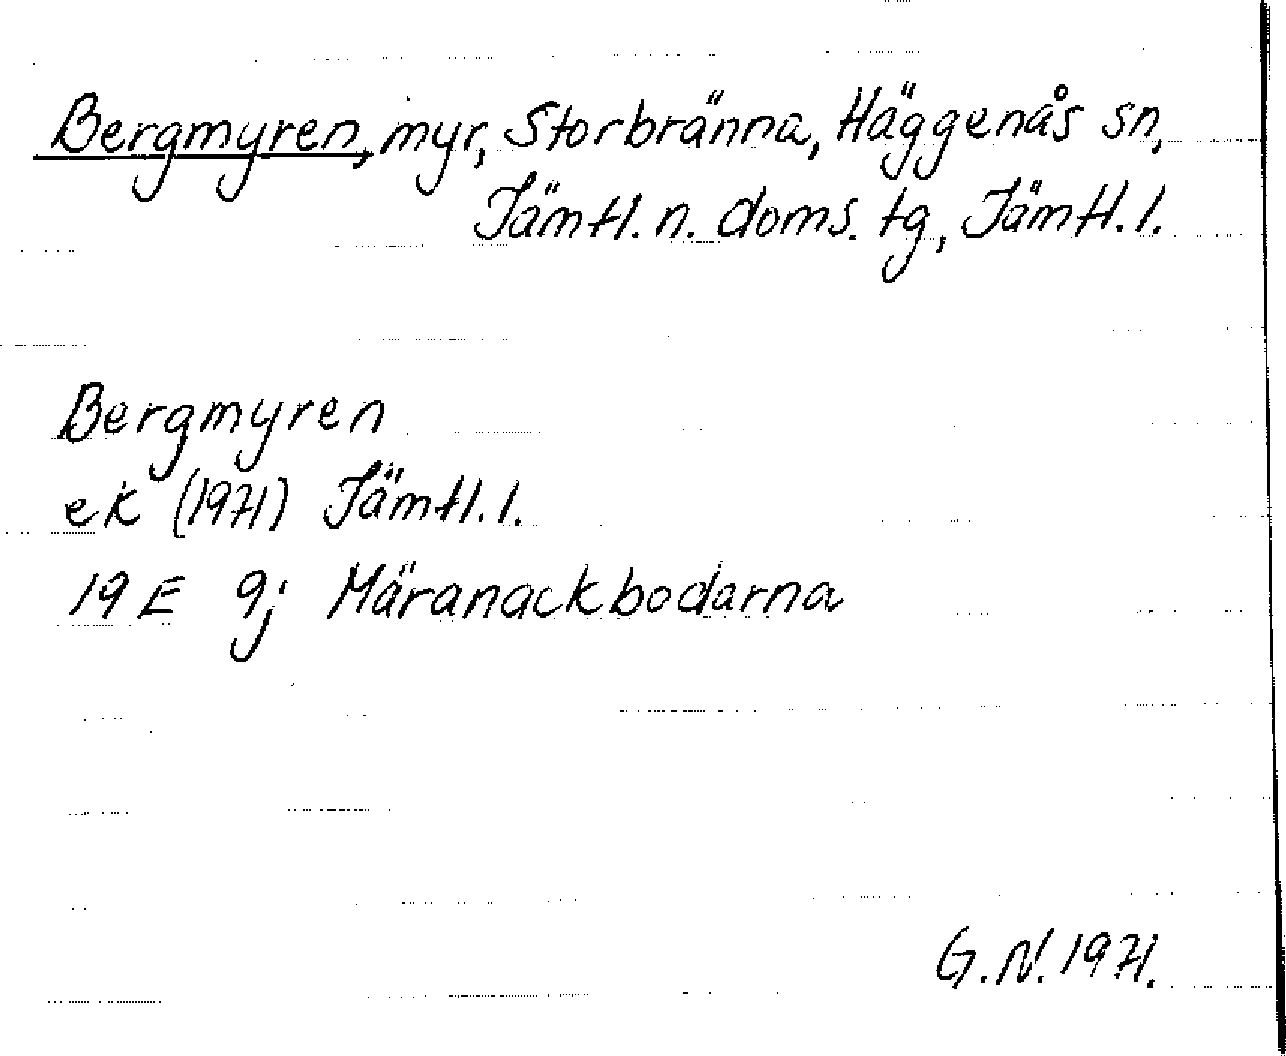 Bergmyren, myr, Storbränna, Häggenås sn,
Jämtl. n. doms. tg, Jämtl. l.
Bergmyren
ek (1971) Jämtl. l.
19 E 9j Märanackbodarna
G. N. 1971.